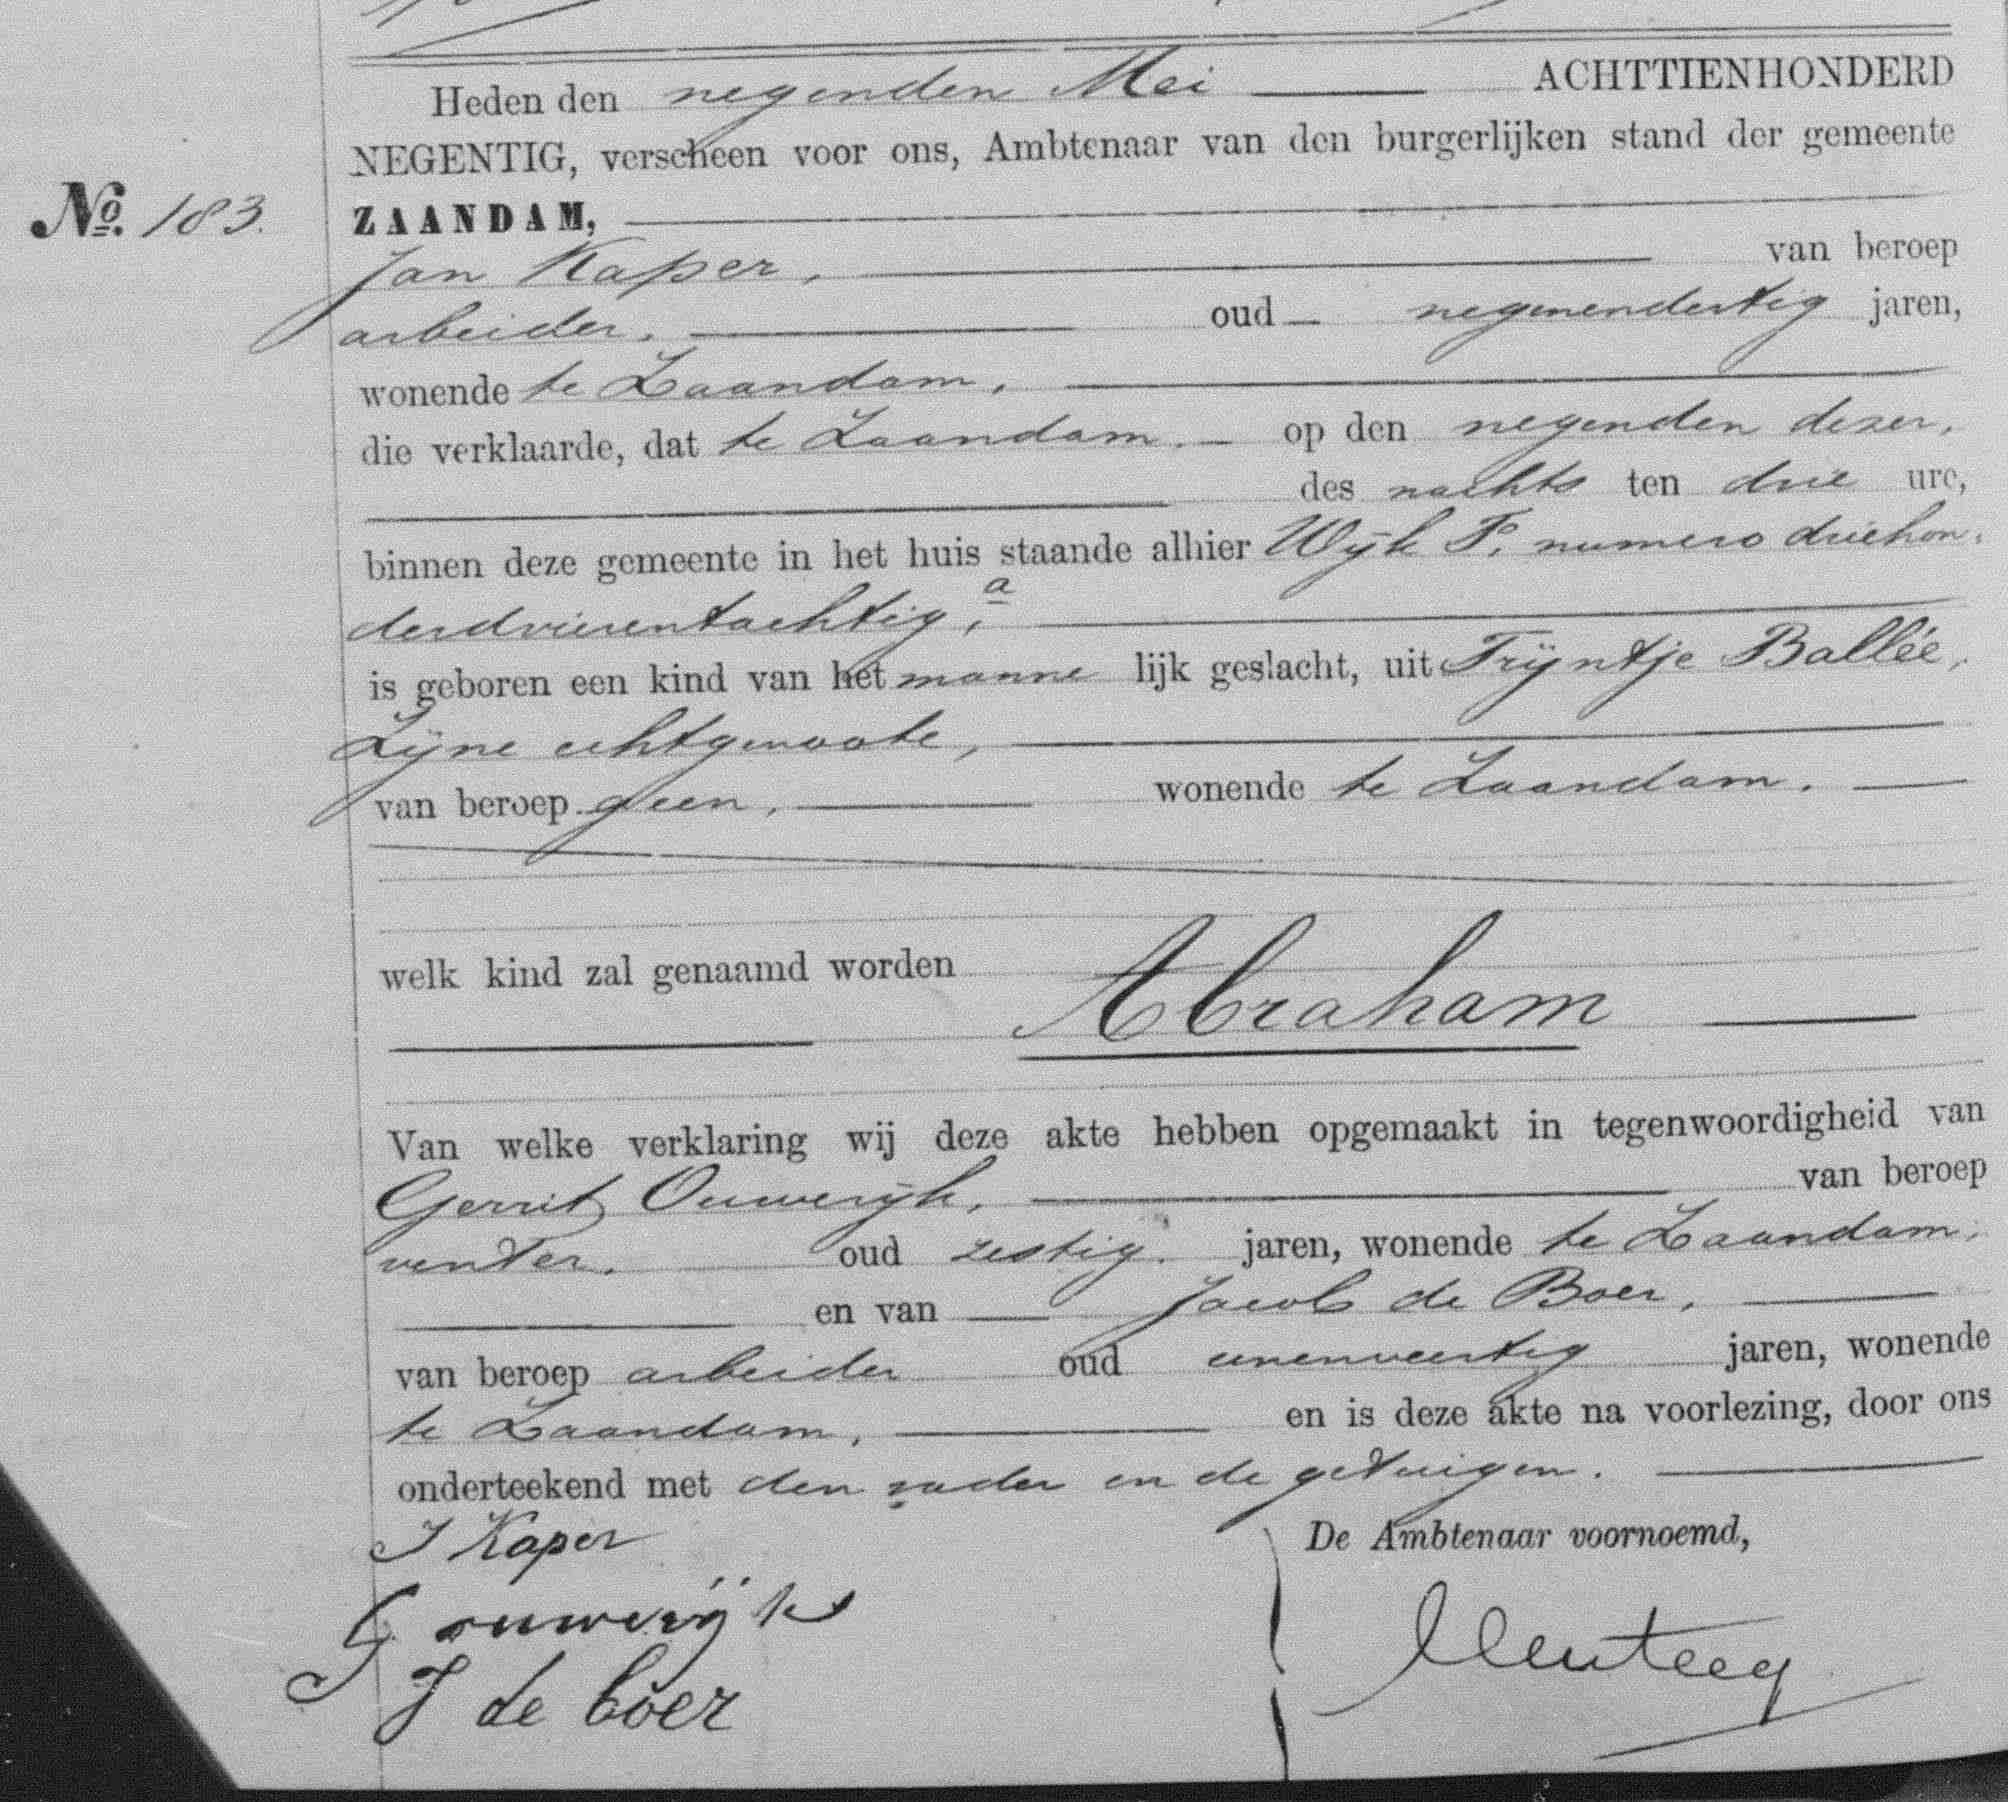 Heden den negenden Mei ACHTTIENHONDERD
NEGENTIG, verscheen voor ons, Ambtenaar van den burgerlijken stand der gemeente
No. 183. ZAANDAM,
Jan Kaper, van beroep
arbeider, oud negenendertig jaren,
wonende te Zaandam,
die verklaarde, dat te Zaandam, op den negenden dezer,
des nachts ten drie ure,
binnen deze gemeente in het huis staande alhier Wijk F. numero driehon-
derdvierentachtig, a
is geboren een kind van het manne lijk geslacht, uit Trijntje Ballée,
Zijne echtgenoote,
van beroep geen, wonende te Zaandam.
welk kind zal genaamd worden Abraham
Van welke verklaring wij deze akte hebben opgemaakt in tegenwoordigheid van
Gerrit Ouwerijk, van beroep
venter, oud zestig jaren, wonende te Zaandam,
en van Jacob de Boer,
van beroep arbeider oud eenenveertig jaren, wonende
te Zaandam, en is deze akte na voorlezing, door ons
onderteekend met den vader en de getuigen.
J Kaper De Ambtenaar voornoemd,
G ouwerijk
J de boer